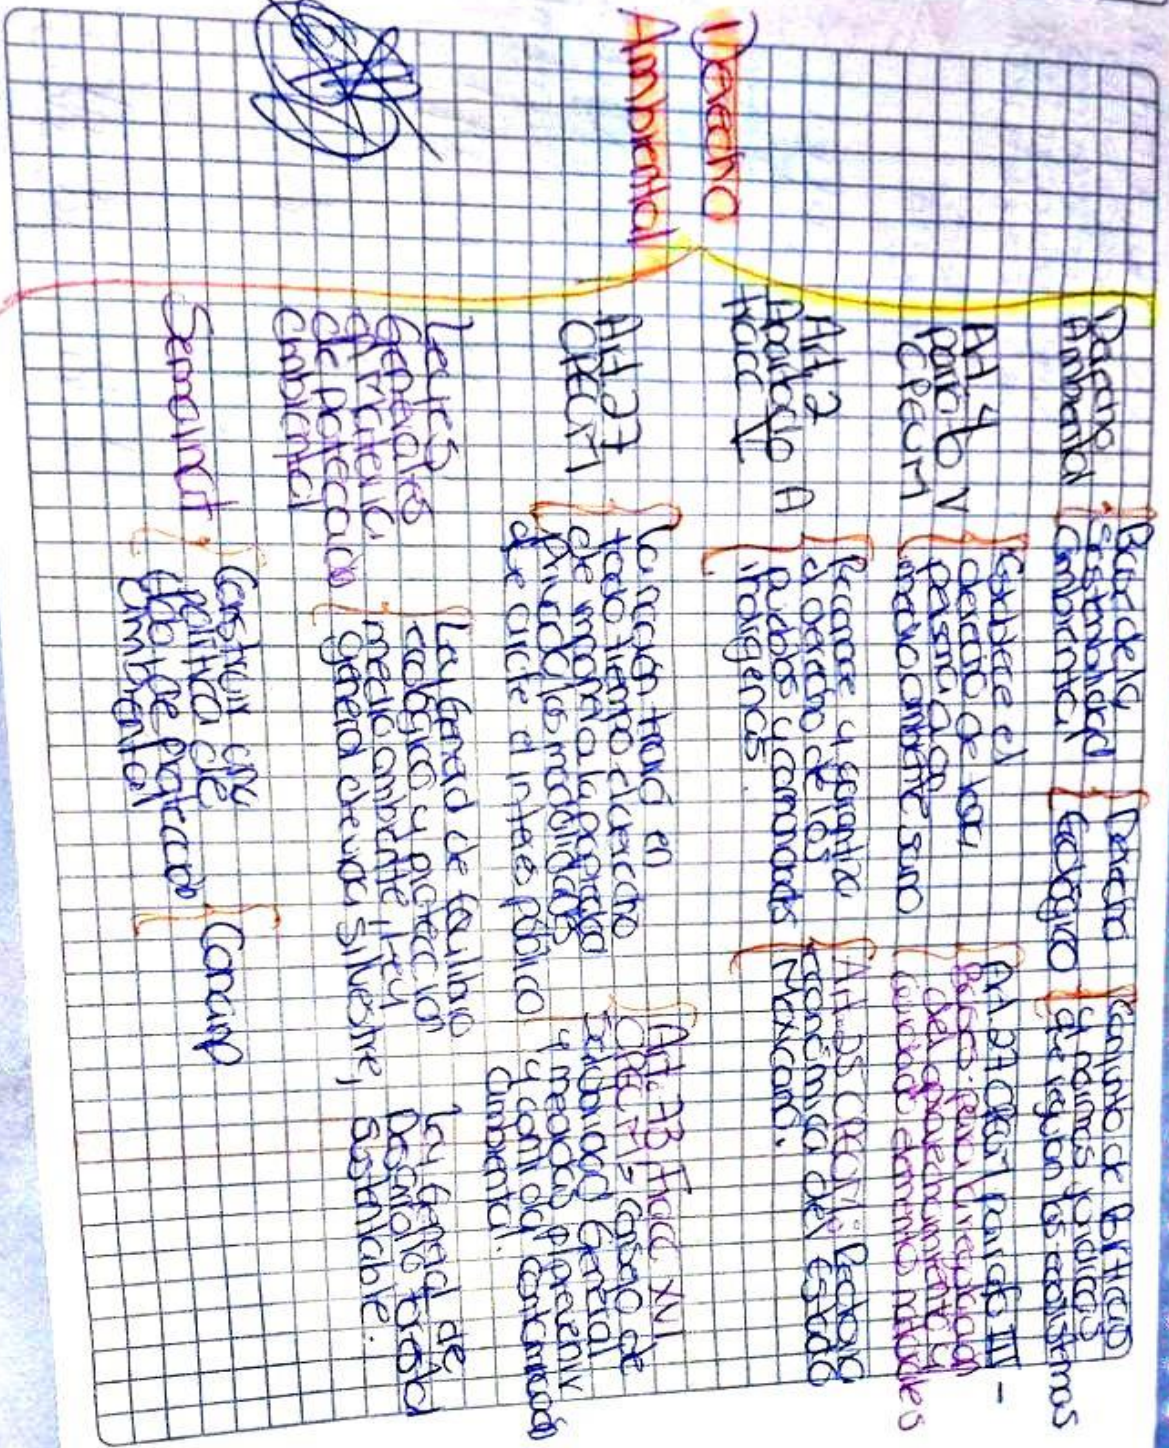 Derecho
Ambiental
Derecho
Ambiental
Base de la
sustentabilidad
ambiental
Derecho
Ecologico
Conjunto de Politicas
y normas juridicas
que regulan los ecosistemas
Art. 4
parrafo V
CPEUM
Establece el
derecho de toda
persona a un
medio ambiente sano
Art 27 CPEUM parrafo III -
Bases para la regulación
del aprovechamiento y
naturales
Art 2
Apartado A
Fracc V
Reconoce y garantiza
el derecho de los
pueblos y comunidades
indigenas.
Art. 25 CPEUM: Rectoria
económica del Estado
Mexicano.
Art 27
CPEUM
La nación tendrá en
todo tiempo el derecho
de imponer a la propiedad
Privada las modalidades
que dicte el interes público
Art. 73 Fracc XVI
CPEUM: Consejo de
Salubridad General
y medidas p/prevenir
y combatir contaminación
ambiental.
Leyes
Generales
en Materia
de protección
ambiental
Ley General de Equilibrio
ecológico y protección
medio ambiente, Ley
general de vida silvestre,
Ley General de
Desarrollo Forestal
Sustentable.
Semarnat
Construir una
política de
Edo. de Protección
ambiental